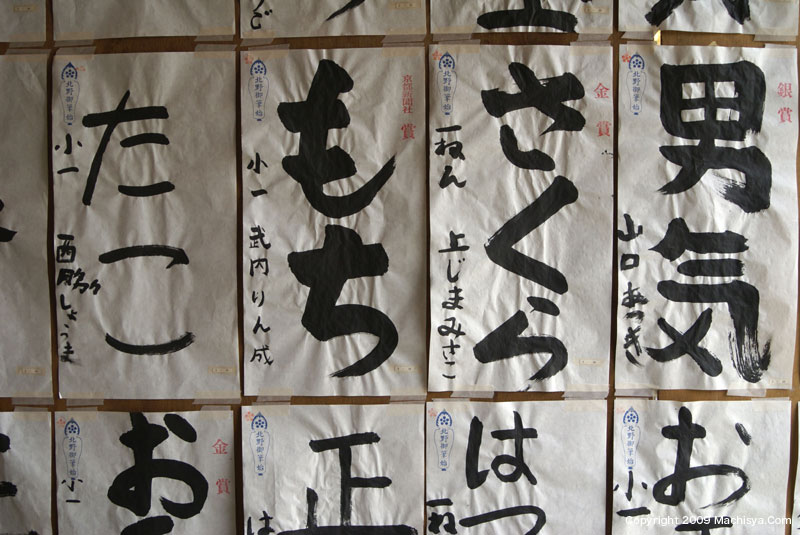 男気
銀賞
北野御筆始
山口あつき
さくら
金賞
北野御筆始
一ねん
上じまみさこ
もち
賞
北野御筆始
小一
武内りん成
たこ
北野御筆始
小一
西脇しょうま
お
北野御筆始
小一
はつ
北野御筆始
一ね
正
北野御筆始
は
お
金賞
北野御筆始
小一
Copyright 2009 Machisya.Com